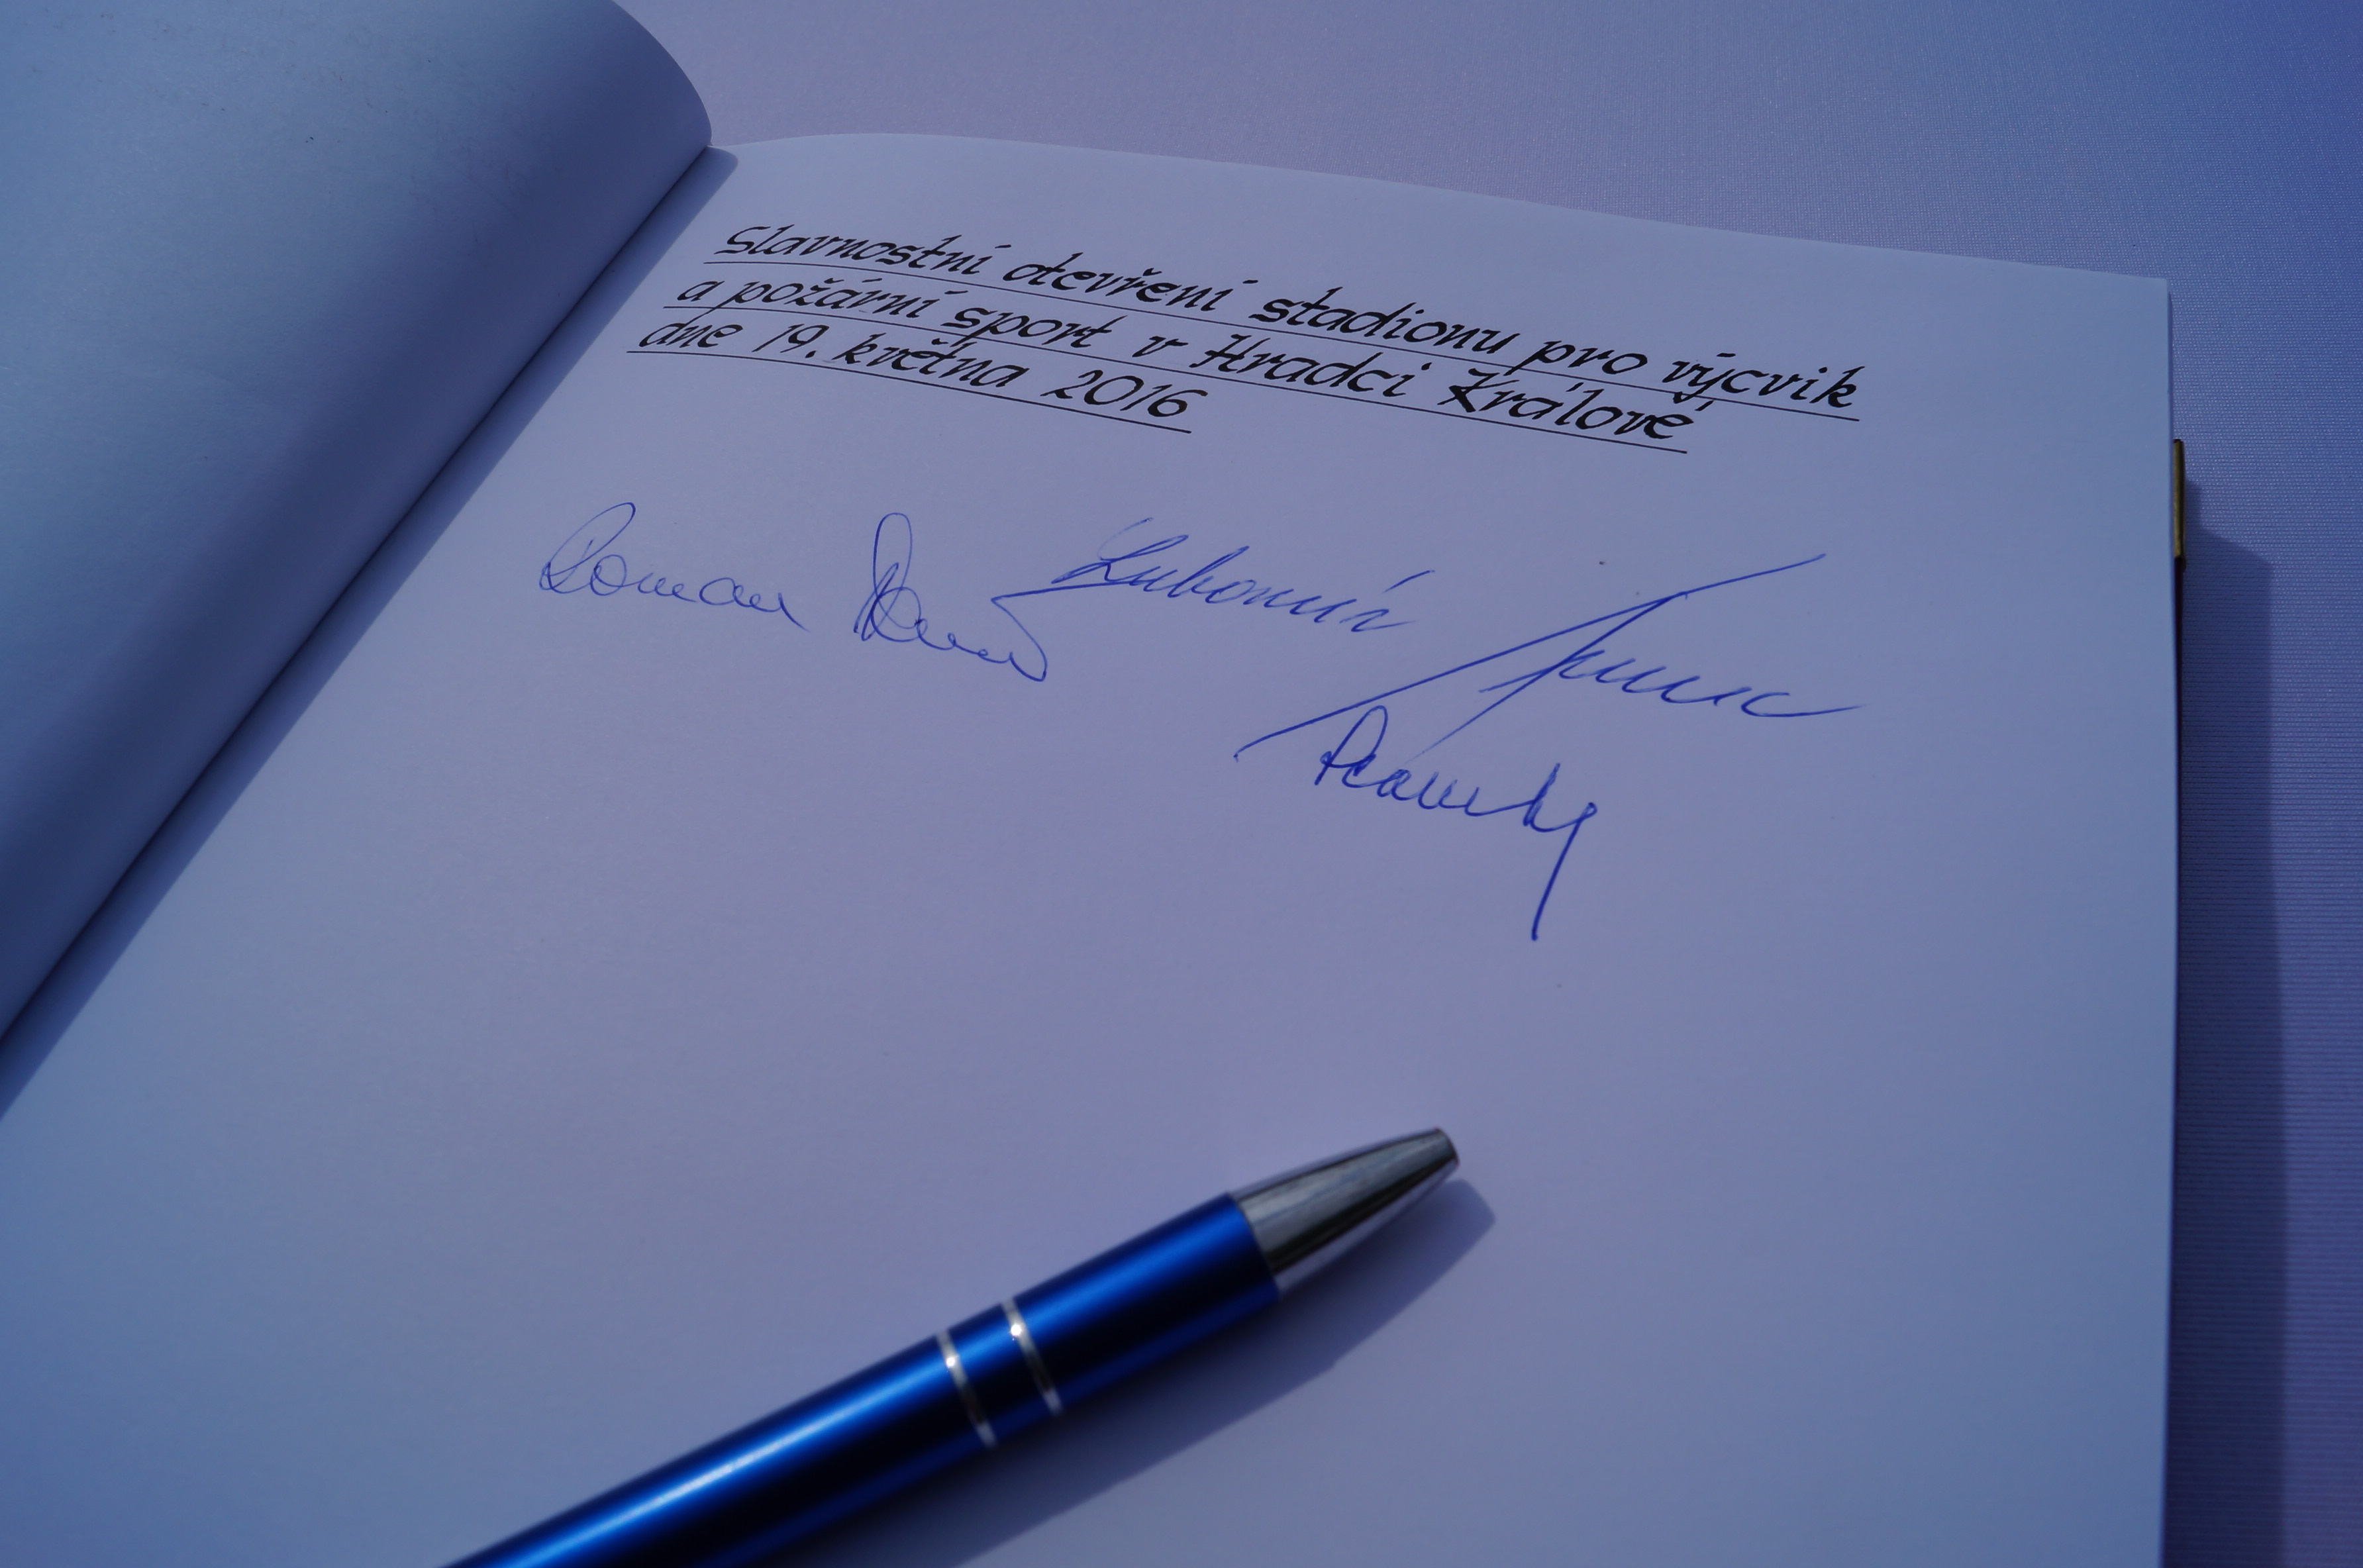 Slavnostní otevření stadionu pro výcvik
a požární sport v Hradci Králové
dne 19. května 2016
Roman Lubomír